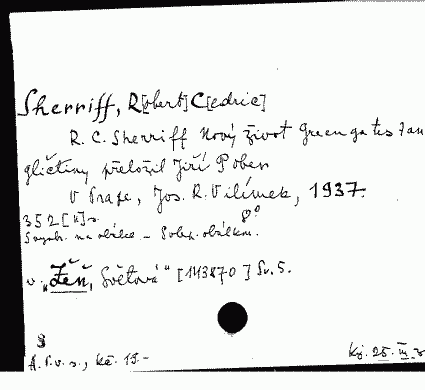 Sherriff, R[obert] C[edric]
R. C. Sherriff Nový život Greengates Z an
gličtiny přeložil Jiří Pober
V Praze, Jos. R. Vilímek, 1937.
352 [II] s. 8°
na obálce – obálkou.
v „Žeň, Světová" [143870] Sv. 5.
8
A. P. v. s., Kč. 19.-
Kj. 25. III.